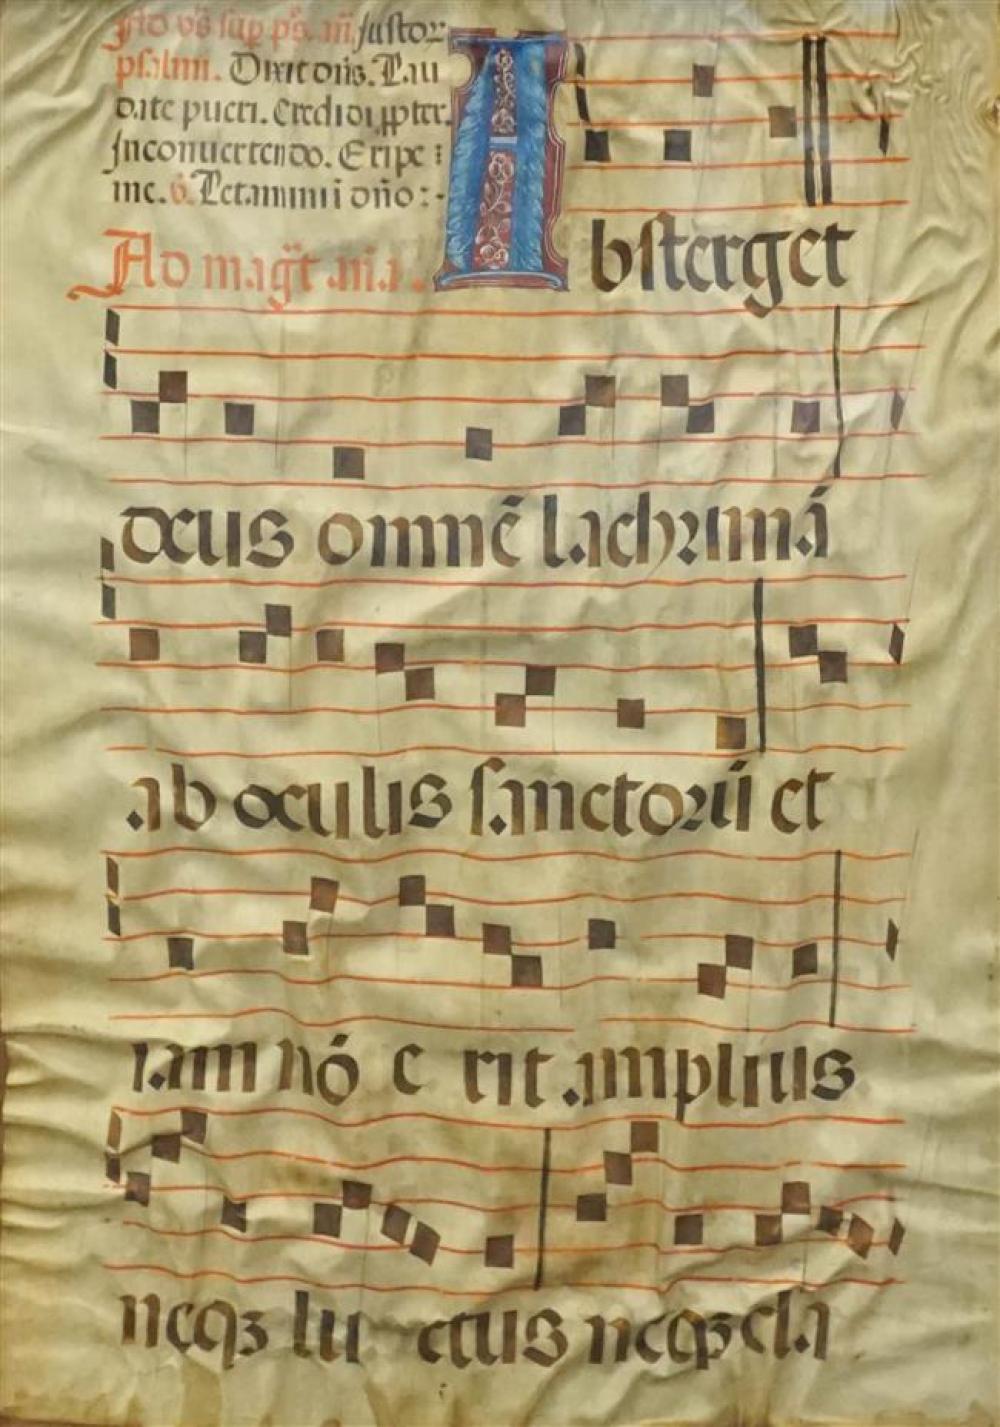 Ad vẽs sup ps. añ. justoꝝ
psalmi. Dixit dñs. Lau
date pueri. Credidi ꝓpter.
Jnconuertendo. Eripe
me. Letamini i dño:-
Ad magt. aña. Absterget
deus omnẽ lachrimã
ab oculis sanctoꝝũ et
iam nõ erit amplius
neqꝫ luctus neqꝫ cla